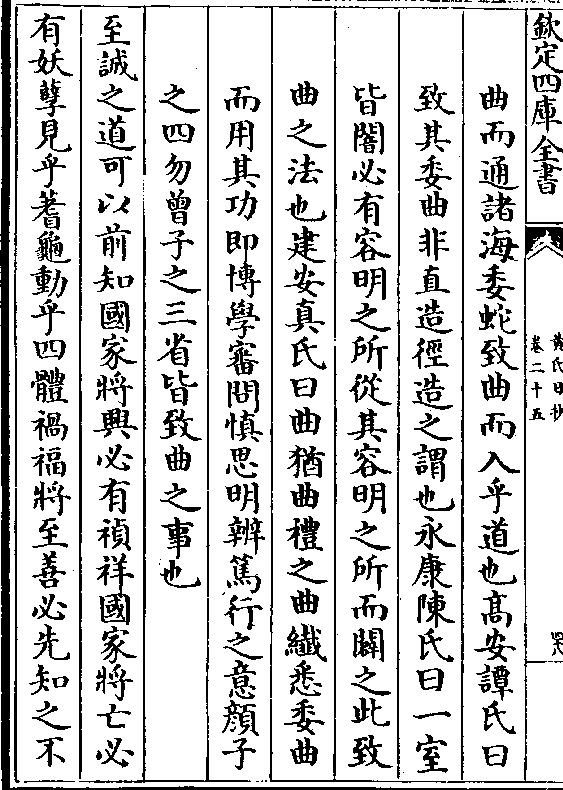 欽定四庫全書
黄氏日抄
卷二十五
曲而通諸海委蛇致曲而入乎道也髙安譚氏曰
致其委曲非直造徑造之謂也永康陳氏曰一室
皆闇必有容明之所從其容明之所而闢之此致
曲之法也建安真氏曰曲猶曲禮之曲纎悉委曲
而用其功即博學審問慎思明辨篤行之意顔子
之四勿曾子之三省皆致曲之事也
至誠之道可以前知國家將興必有禎祥國家將亡必
有妖孽見乎蓍龜動乎四體禍福將至善必先知之不